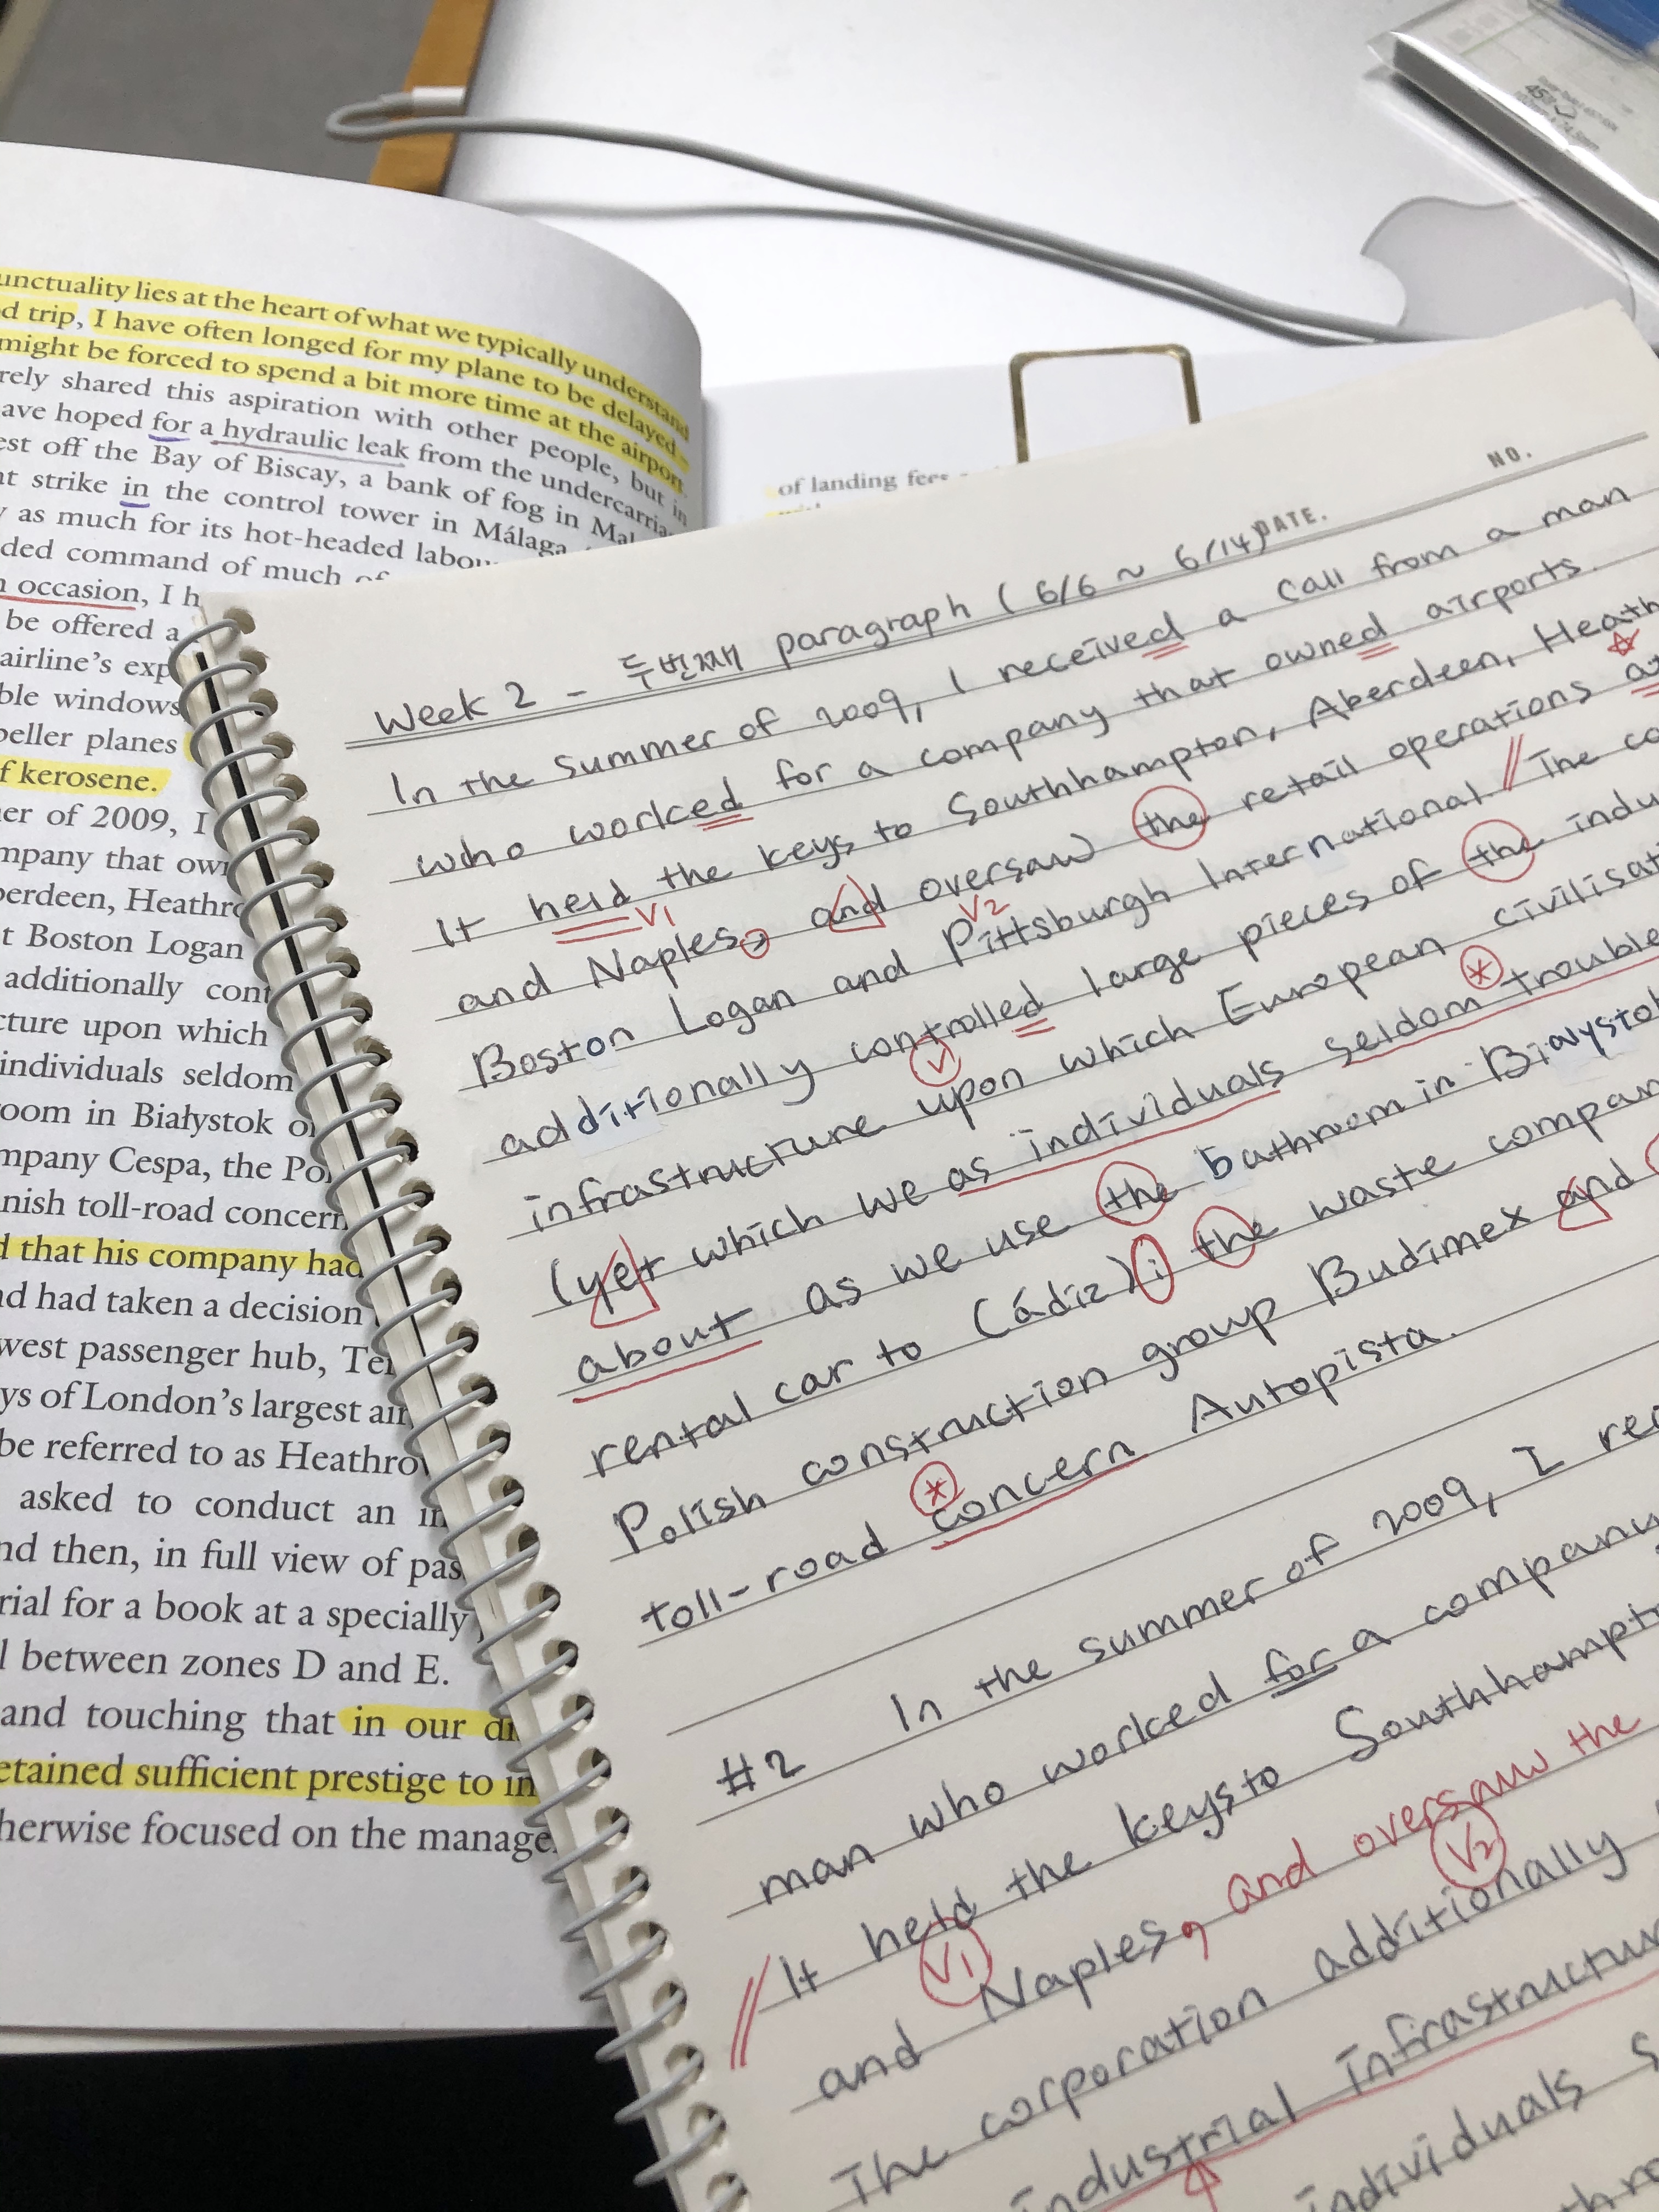 unctuality lies at the heart of what we typically understand
d trip, I have often longed for my plane to be delayed –
might be forced to spend a bit more time at the airport.
rely shared this aspiration with other people, but in
ave hoped for a hydraulic leak from the undercarria
est off the Bay of Biscay, a bank of fog in Mal
nt strike in the control tower in Málaga
y as much for its hot-headed labou
ded command of much of
n occasion, I h
be offered a
airline's exp
ble windows
peller planes
f kerosene.
er of 2009, I
mpany that ow
perdeen, Heathr
t Boston Logan
additionally cont
cture upon which
individuals seldom
room in Białystok o
mpany Cespa, the Po
nish toll-road concern
d that his company had
nd had taken a decision
west passenger hub, Te
ys of London's largest air
be referred to as Heathro
asked to conduct an in
nd then, in full view of pas
rial for a book at a specially
l between zones D and E.
and touching that in our di
etained sufficient prestige to in
herwise focused on the manage
of landing fees
NO.
DATE.
Week 2 - 두번째 paragraph (6/6 ~ 6/14)
In the summer of 2009, I received a call from a man
who worked for a company that owned airports.
It held the keys to Southhampton, Aberdeen, Heath
V1
and Naples, and oversaw the retail operations at
V2
Boston Logan and Pittsburgh International // The co
additionally controlled large pieces of the indu
V
infrastructure upon which European civilisat
(yet which we as individuals seldom trouble
about as we use the bathroom in Bialystok
rental car to Cádiz); the waste compan
Polish construction group Budimex and
toll-road concern Autopista.
#2 In the summer of 2009, I rec
man who worked for a company
// It held the keys to Southhampt
V1
and Naples, and oversaw the
V2
The corporation additionally
industrial infrastructur
individuals s